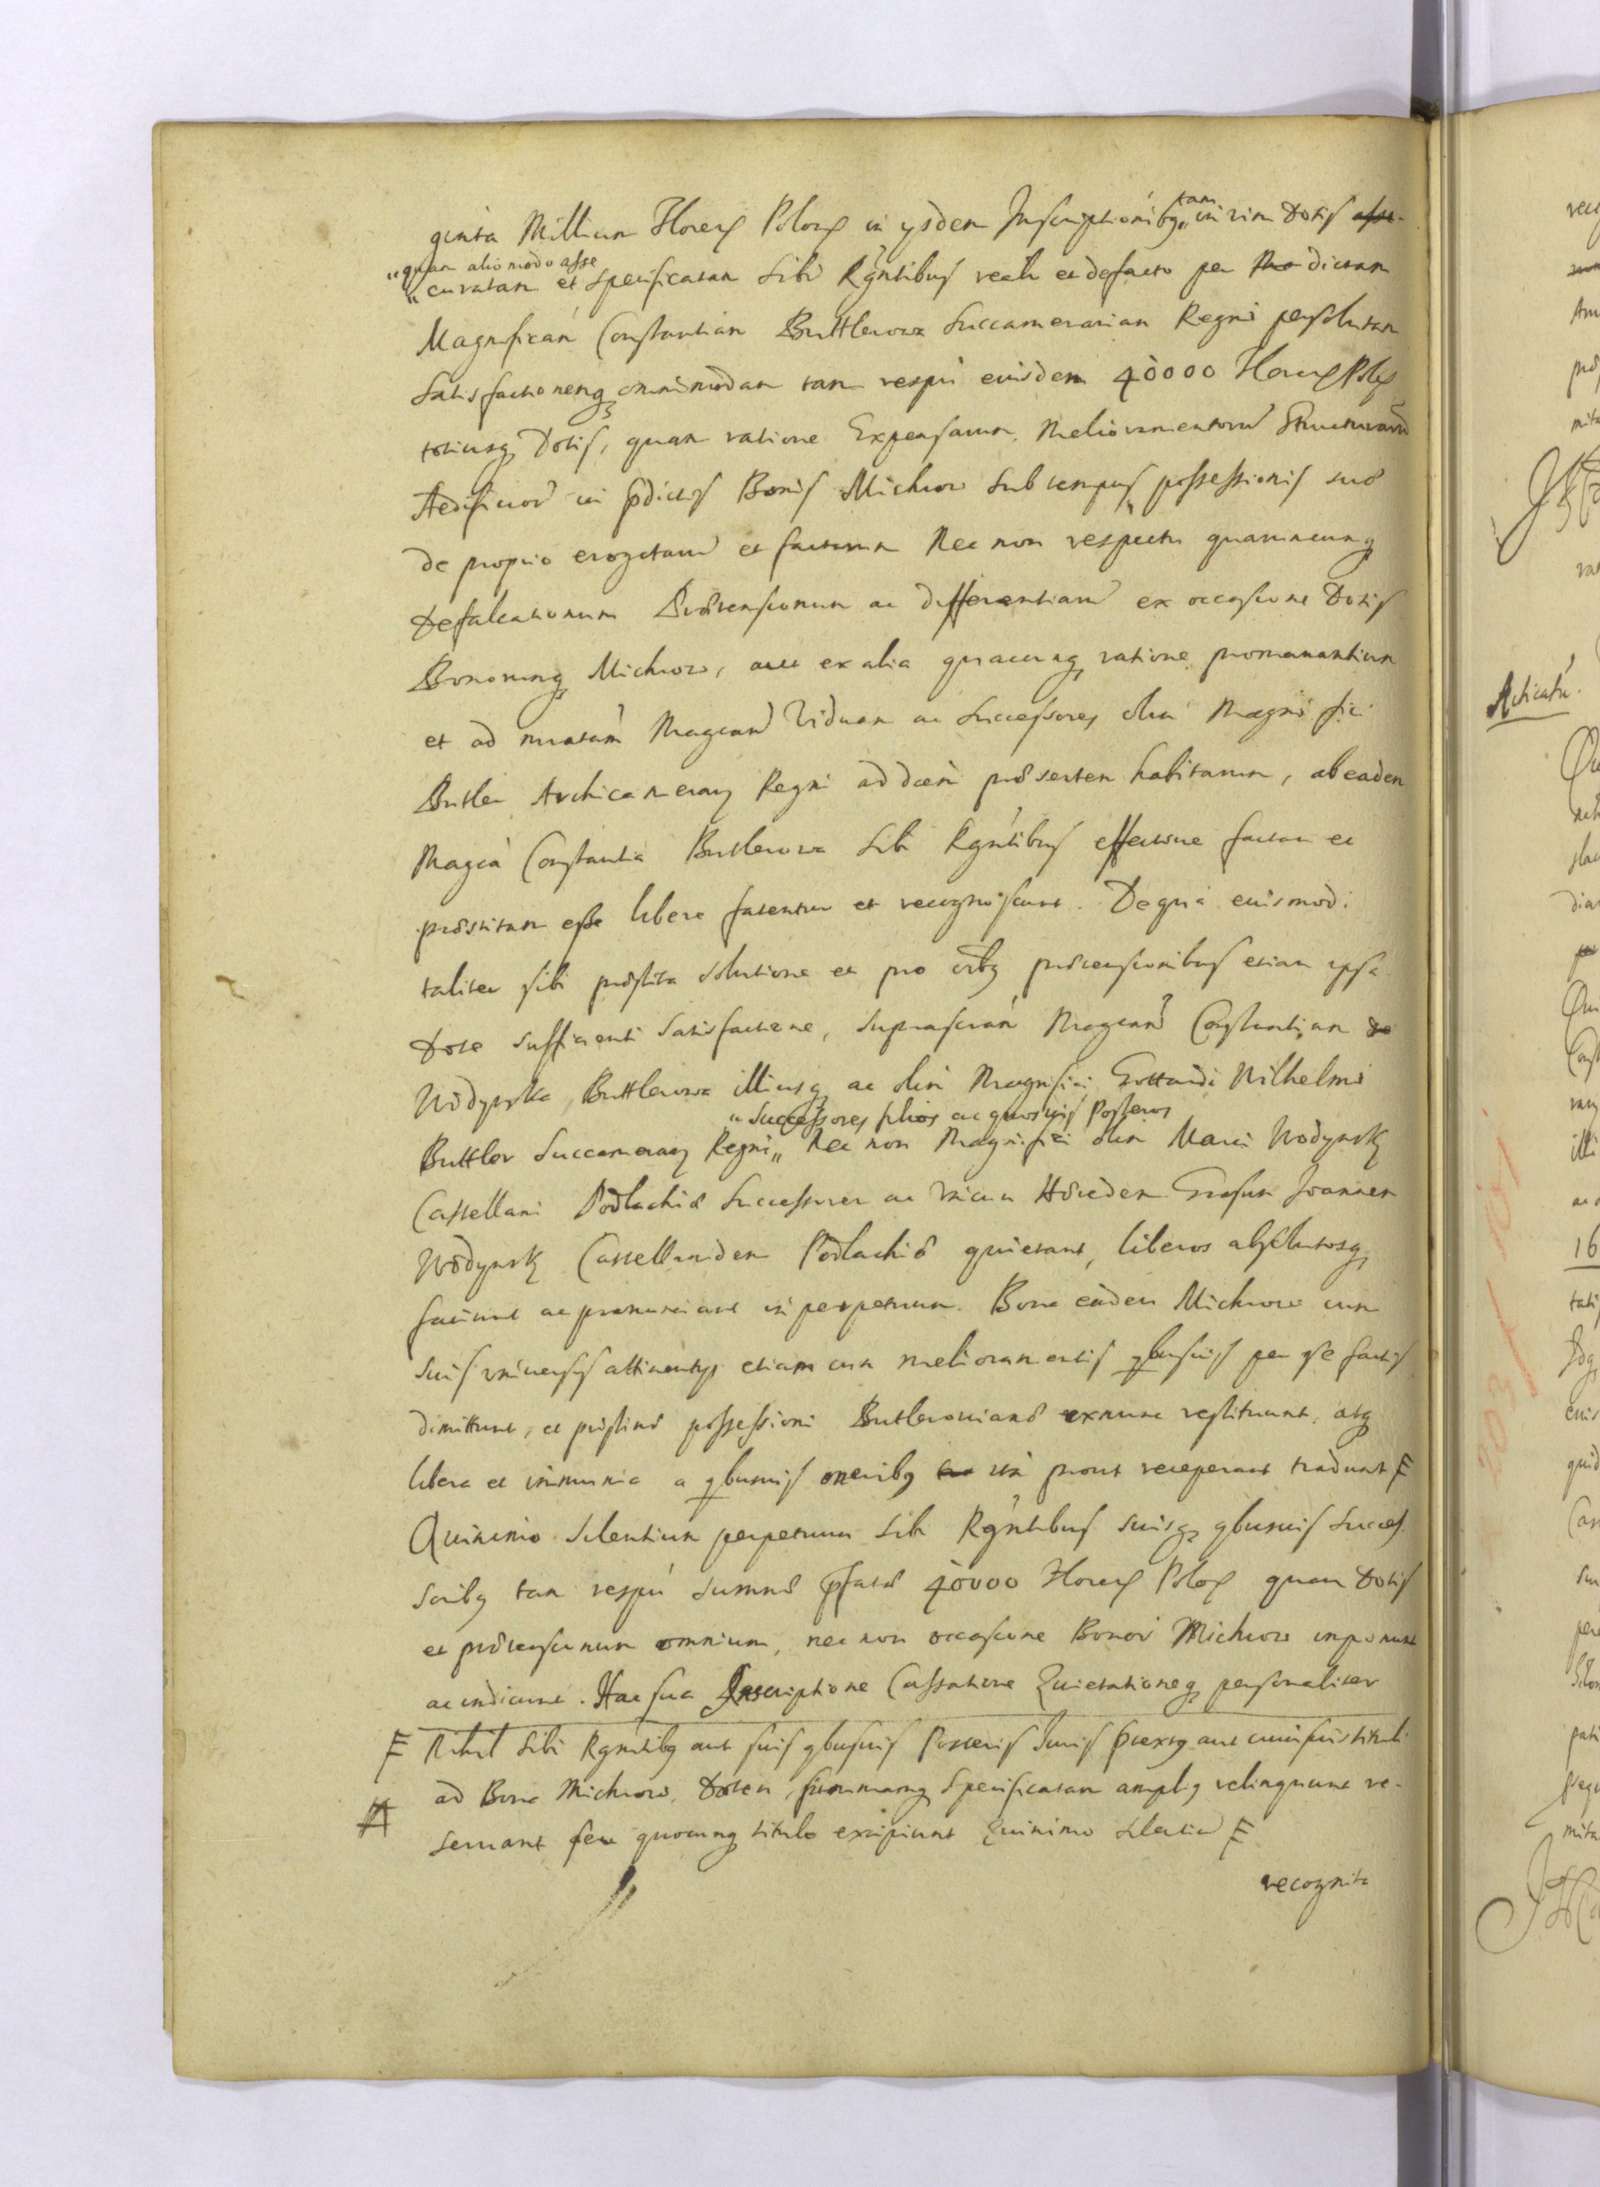 ginta Millium Floren Polon in ijsdem Inscriptionibq „tam in vim Dotis asse-
„quam alio modo asse
„curatam et specificatam sibi Rgntibus realr et defacto per Mo dictam
Magnifican Constantiam Buttlerowa Succamerariam Regni persolutam
Satisfactionemq omnimodam tam respu eiusdem 40000 Floren Polo
totiusq Dotis, quam ratione Expensarum, Melioramentoru Structuraru
Aedificior in pdictis Bonis Michow sub tempus possessionis suæ
de proprio erogataru et factarum Nec non respectu quarumcunq
Defalcationum Prætensionum ac differentiaru ex occasione Dotis
Bonorumq Michow, aut ex alia quacunq ratione promanantium
et ad nratam Magcam Viduam ac Successores olim Magnifici
Butler Archicamerarij Regni ad dcem præsentem habitarum, ab eadem
Magca Constantia Butlerowa Sibi Rgntibus effective factam et
præstitam esse libere fatentur et recognoscunt. De qua eiusmodi
taliter sibi præstita solutione et pro oibq prætensionibus etiam ipsa
Dote sufficienti satisfactione, suprascran Magcam Constantiam de
Wodynska Buttlerowa illiusq ac olim Magnifici Gottardi Wilhelmi
„Successores filios ac quosuis Posteros
Buttler Succamerarij Regni „ Nec non Magnifici olim Marci Wodynsky
Castellani Podlachiæ Successorem ac Vnicum Hæredem Grosum Joannem
Wodynsky Castellanidem Podlachiæ quietant, liberos absolutosq
faciunt ac pronunciant in perpetuum. Bona eadem Michow cum
suis vniuersis attinentijs etiam cum melioramentis qbusuis per se factis
dimittunt, et pristinæ possessioni Butlerowianæ exnunc restituunt, atq
libera et immunia a qbusuis oneribq uti prout receperant tradunt F
Quinimo Silentium perpetuum Sibi Rgntibus suisq qbusuis Succes
soribq tam respu summæ pfatæ 40000 Floren Polon quam Dotis
et prætensionum omnium, nec non occasione Bonor Michow imponunt
ac indicunt. Hac sua Inscriptione Cassatione Quietationeq personaliter
F Nihil Sibi Rgntibq aut suis qbusuis Posteris Iuris prætextq aut cuiusuis tituli
ad Bona Michow, Dotem, summamq specificatam ampliq relinquunt re-
seruant seu quocunq titulo excipiunt Quinimo silentiu F
recognita
Acticatu